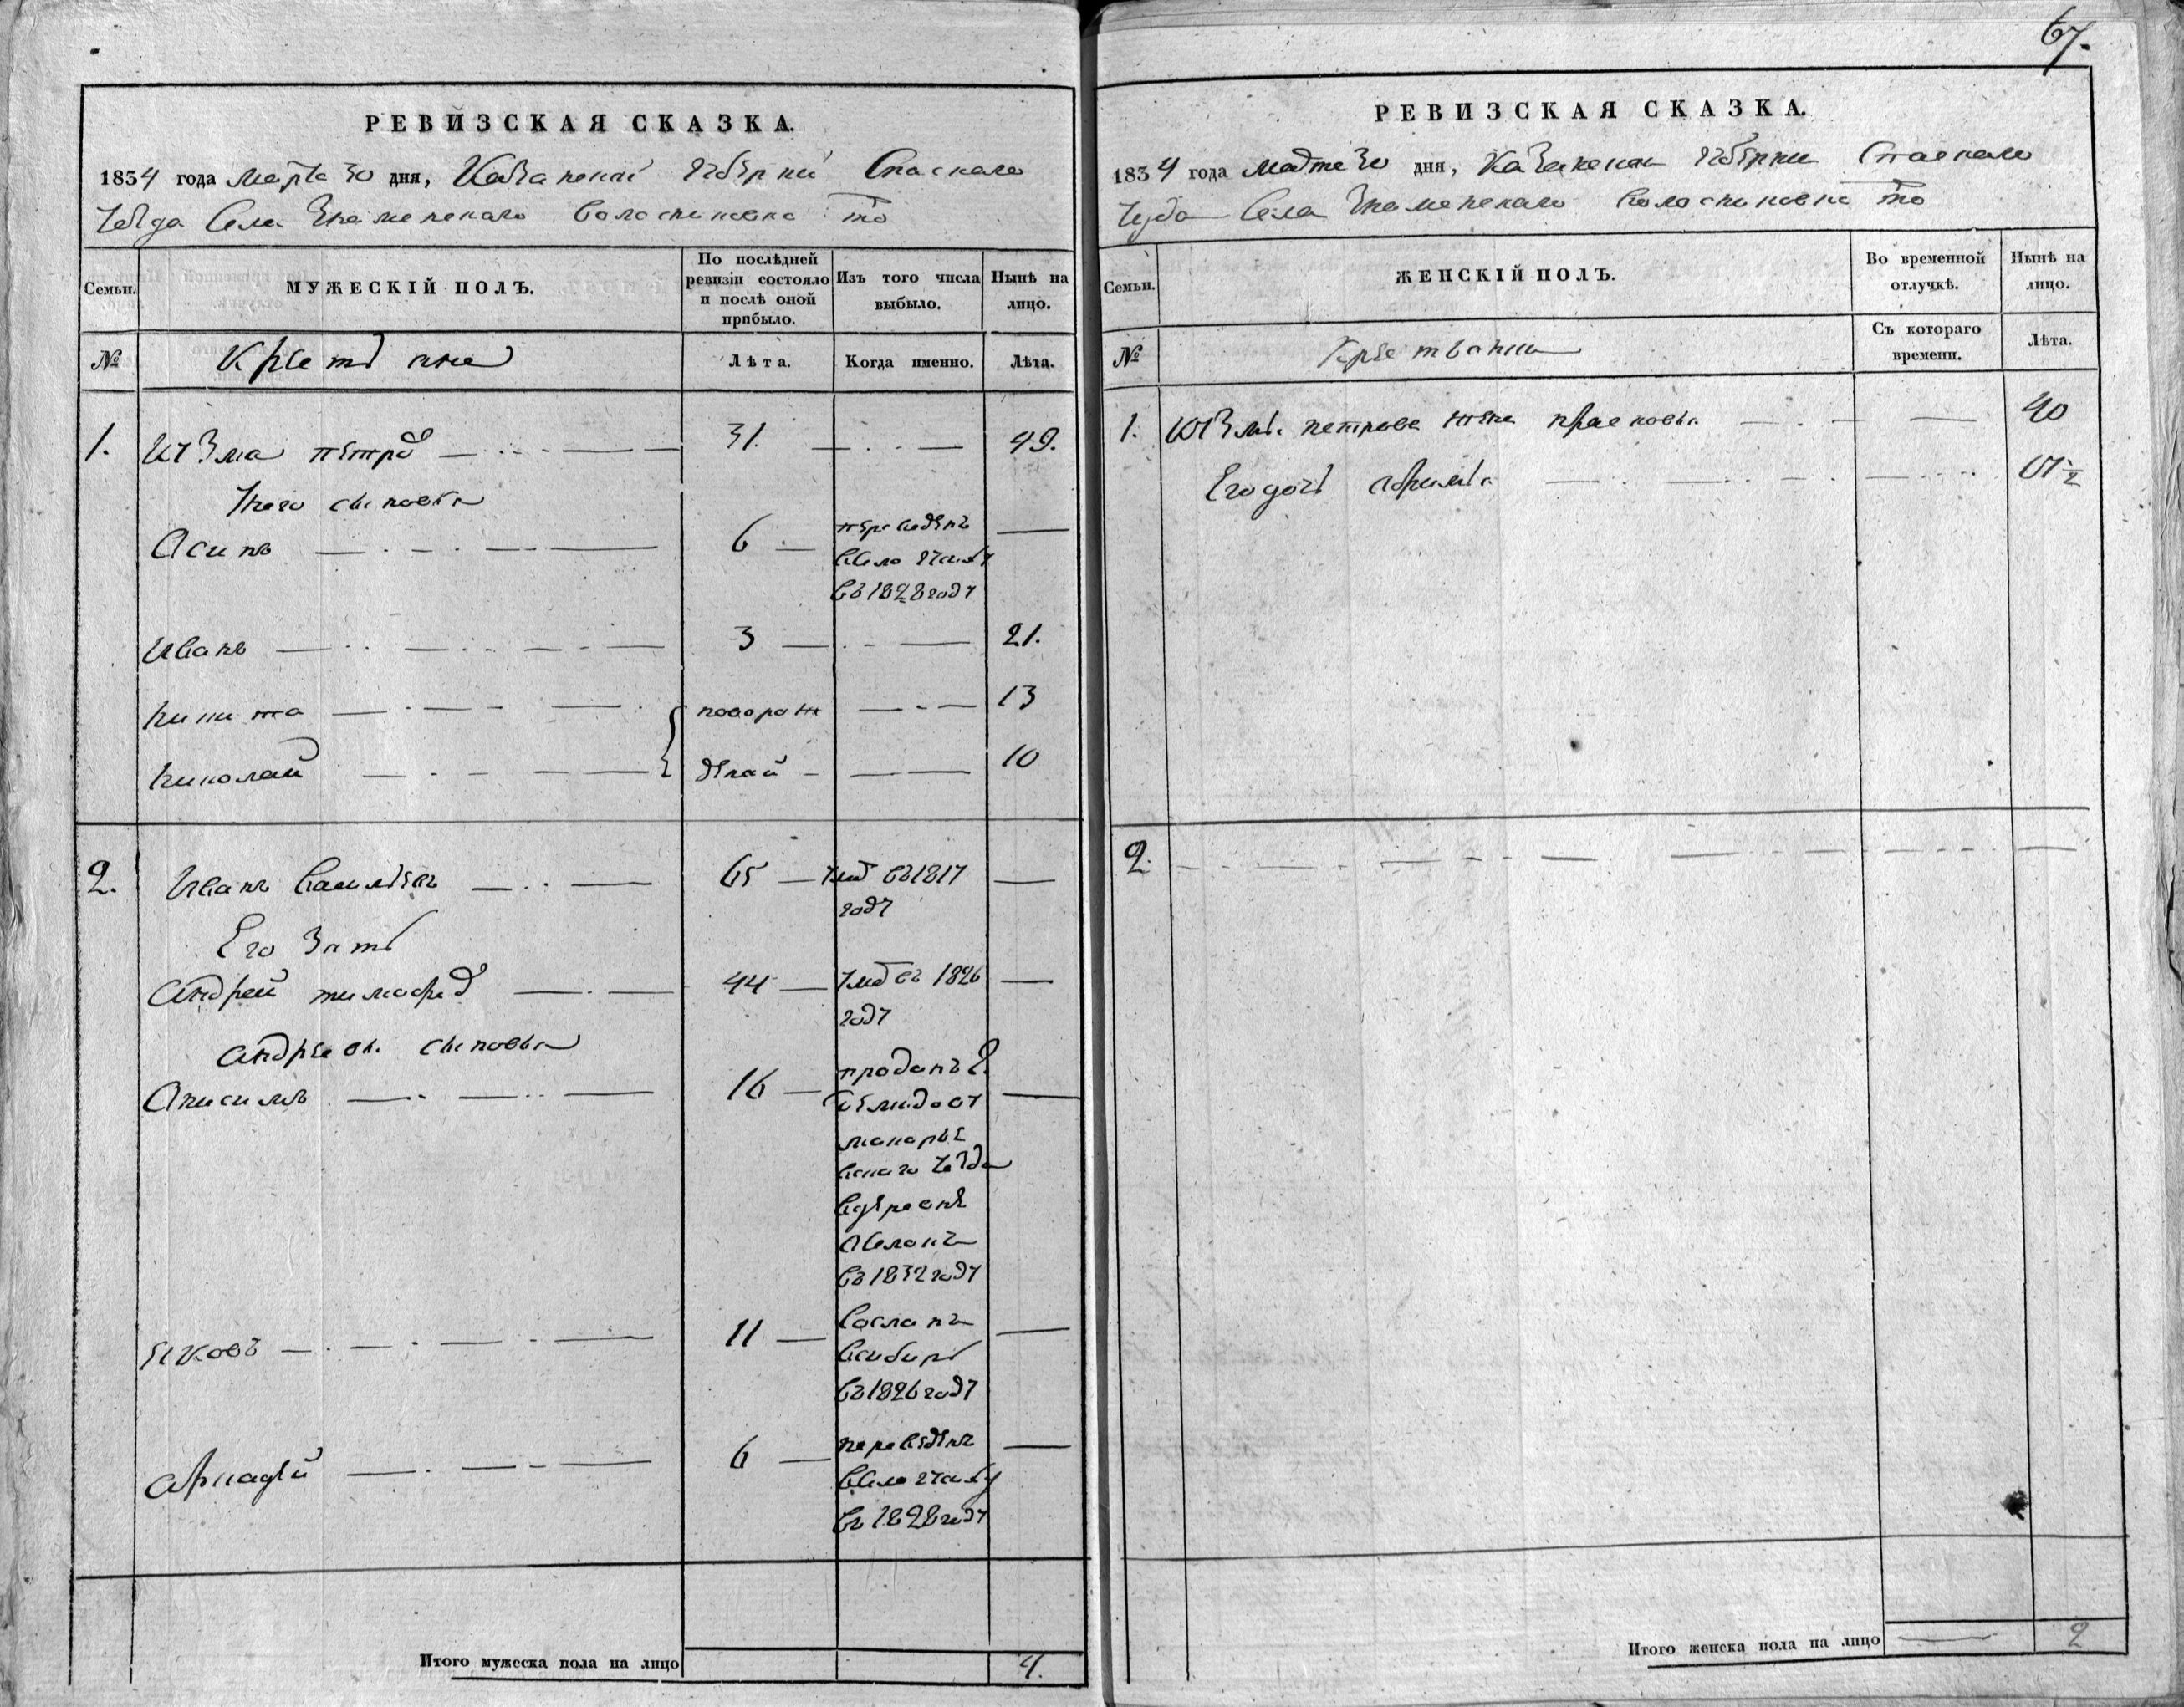 67.
РЕВИЗСКАЯ СКАЗКА.
1834 года марта 30 дня, Казанской губернии Спаскаго
уезда Села Знаменскаго
Семьи.
МУЖЕСКІЙ ПОЛЪ.
По послѣдней ревизіи состояло и послѣ оной прибыло.
Изъ того числа выбыло.
Нынѣ на лицо.
№
Крестьяне
Лѣта.
Когда именно.
Лѣта.
1. Кузма петров 31. 49.
У него сыновья
Осипъ 6 переведенъ
в село
въ 1828 году
Иванъ 3 21.
никита новорож 13
николай денай 10
2. Иванъ васильевъ 65 умъ въ 1817
году
Его зять
Андрей тимофеев 44 ум въ 1826
году
андреевы сыновья
Анисимъ 16 проданъ Г.
демидову
макарье
вскаго уезда
в деревне
въ 1832 году
яковъ 11 Сосланъ
в сибирь
въ 1826 году
аркадей 6 переведенъ
в село
въ 1828 году
Итого мужеска пола на лицо 4.
РЕВИЗСКАЯ СКАЗКА.
1834 года марта 30 дня, Казанской губернии Спаскаго
уезда Села Знаменскаго
Семьи.
ЖЕНСКІЙ ПОЛЪ.
Во временной отлучкѣ.
Нынѣ на лицо.
№
Крестьянки
Съ котораго времени.
Лѣта.
1. Кузмы петрова жена прасковья 40
Его дочь
2.
Итого женска пола на лицо 2